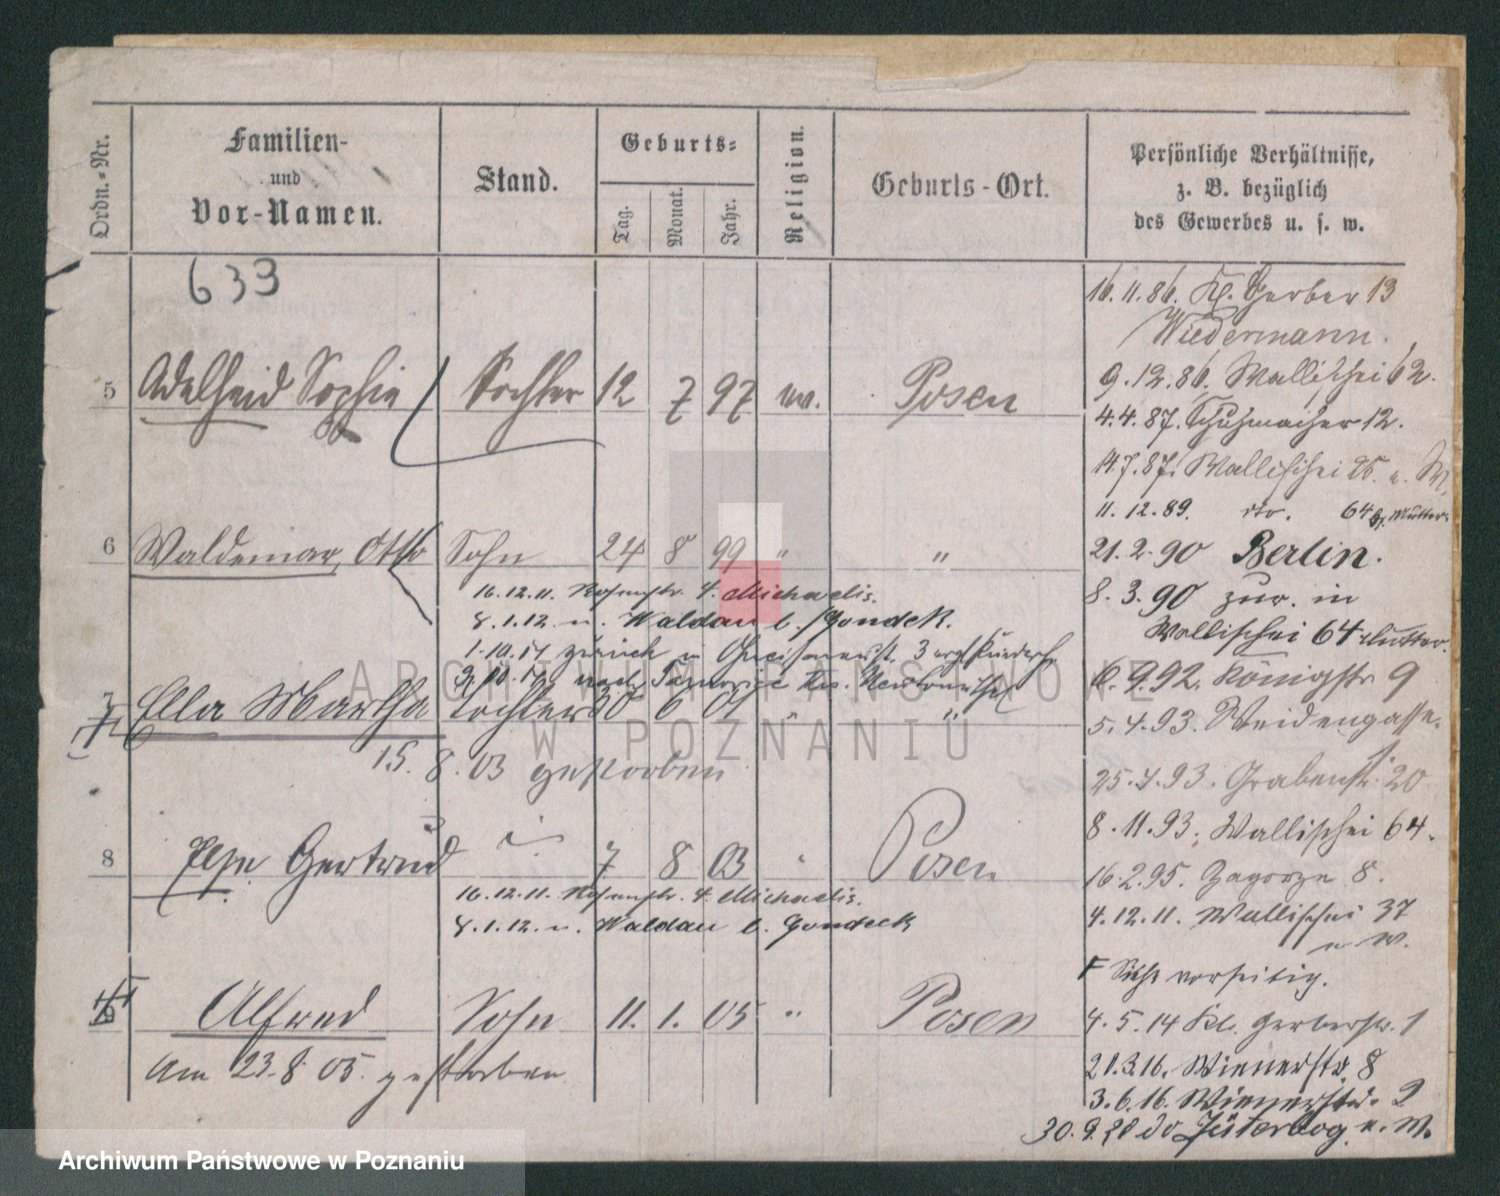 Ordn.-Nr.
Familien-
und
Vor-Namen.
Stand.
Geburts-
Tag.
Monat.
Jahr.
Religion.
Geburts-Ort.
Persönliche Verhältnisse,
z. B. bezüglich
des Gewerbes u. s. w.
633
16.11.86. Kl. Gerber 13
Wiedermann.
9.12.86. Wallischei 62.
5 Adelheid Sophie Tochter 12 7 97 Posen
4.4.87. Schuhmacher 12.
14.7.87. Wallischei
11.12.89. do. 64 Mutter
6 Waldemar, Otto Sohn 24 8 99 " "
21.2.90 Berlin.
16.12.11. Rosenstr. 4. Michaelis.
8.3.90 zur. in
8.1.12. n. Waldau b. Gondek.
Wallischei 64 Mutter
1.10.17 zurück
6.9.92. Königstr 9
7 Ella Martha Tochter 30 6 01 " "
5.4.93. Weidengasse
15.8.03 gestorben
25.4.93. Grabenstr. 20
8.11.93. Wallischei 64.
8 Else Gertrud 7 8 03 " Posen
16.2.95. Zagorze 8.
16.12.11. Rosenstr. 4. Michaelis.
4.12.11. Wallischei 37
8.1.12. n. Waldau b. Gondeck
u. W.
Siehe vorseitig.
Alfred Sohn 11. 1. 05 " Posen
4.5.14 Kl. Gerberstr. 1
Am 23.8.05. gestorben
21.3.16. Wienerstr 8
3.6.16. Wienerstr. 2
Jüterbog u. W.
ARCHIWUM PAŃSTWOWE
W POZNANIU
Archiwum Państwowe w Poznaniu